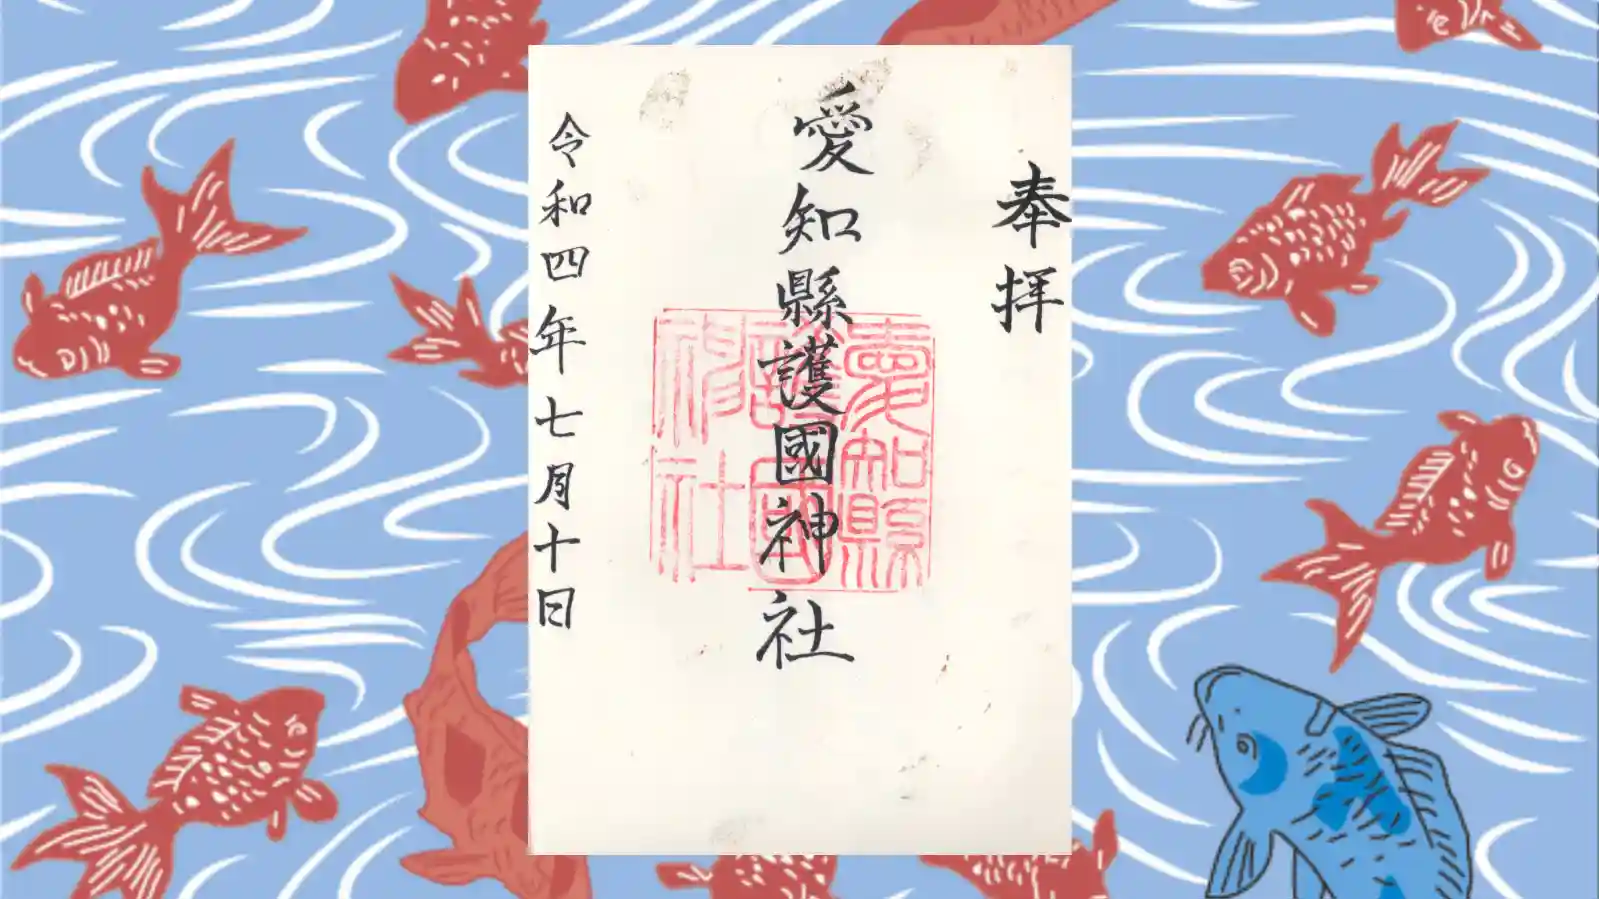 奉拝
愛知縣護國神社
愛知縣
護國
神社
令和四年七月十日